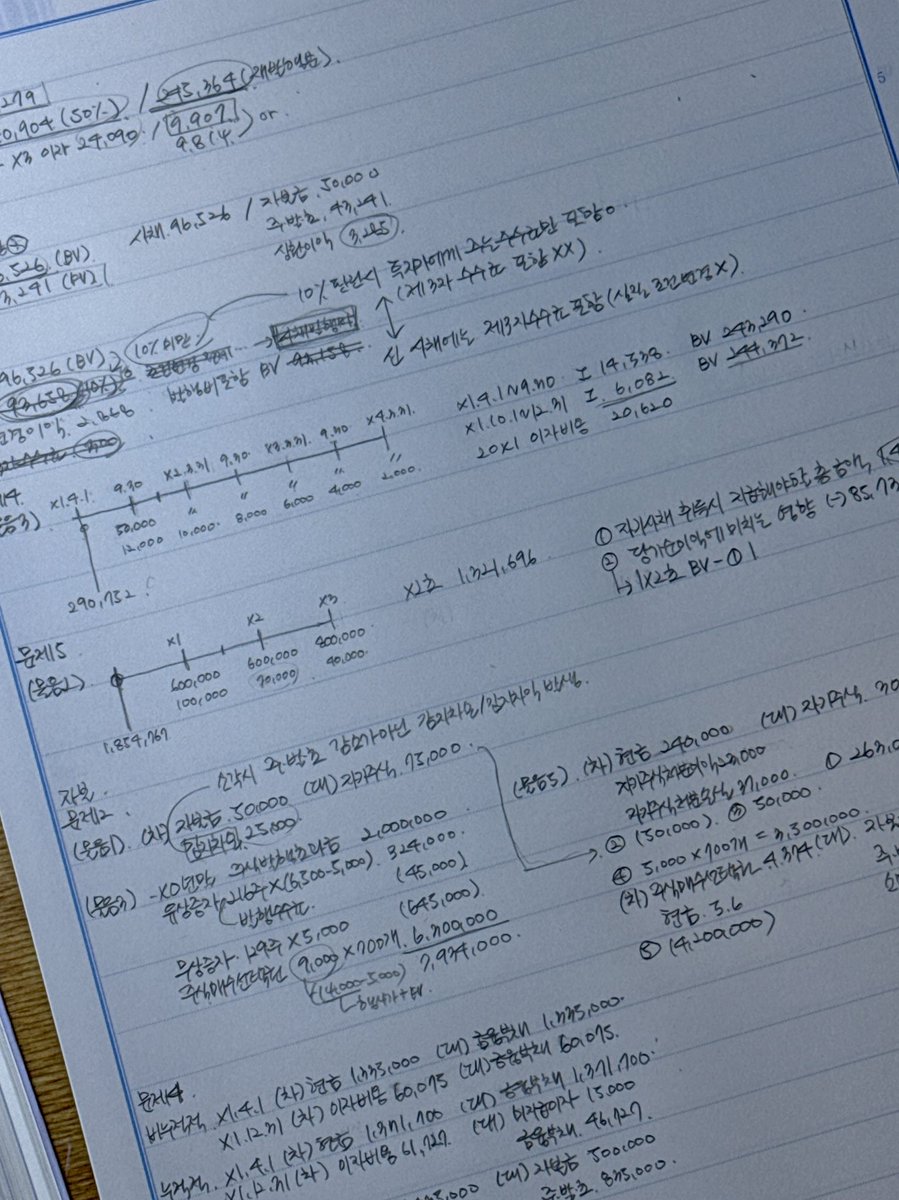 279
0,904 (50%) / 245,364 (재발행)
x3 이자 24,090 / 9,907
9,814) or
사채 96,526 / 자본금 50,000
주발초 43,241
상환이익 3,285
,526 (BV)
3,241 (BV)
10% 판단시 채권자에게 주는 수수료만 포함
(제3자 수수료 포함 XX)
96,526 (BV)
10% 미만
93,658
발행비포함 BV
신 사채에는 제3자수수료 포함 (실질 조건변경X)
경이익 2,868
x1.4.1~9.30 I 14,338 BV 243,290
x1.10.1~12.31 I 6,082 BV 244,372
20x1 이자비용 20,620
x1.4.1. 9.30 x2.3.31. 9.30 x3.3.31. 9.30 x4.3.31.
물음3)
50,000 〃 〃 〃 〃 〃
12,000 10,000 8,000 6,000 4,000 2,000
290,752
문제15
(물음2)
x1 x2 x3
600,000 600,000 800,000
100,000 70,000 40,000
1,854,767
x2초 1,321,696
① 자기사채 취득시 지급해야할 총금액
② 당기순이익에 미치는 영향 (-) 85,73
↳ |x2초 BV-①|
자본
소각시 주발초 감소가 아닌 감자차손/감자차익 발생
문제2
(물음1) (차) 자본금 50,000 (대) 자기주식 75,000
감자차손 25,000
(물음3) -x0년말 주식발행초과금 2,000,000
유상증자 216주 x (6,500-5,000) 324,000
발행수수료 (45,000)
무상증자 129주 x 5,000 (645,000)
주식매수선택권 9,000 x 700개 6,300,000
(14,000-5,000) 7,934,000
↳ 행사가+FV
(물음5) (차) 현금 240,000 (대) 자기주식 30
자기주식처분이익 23,000
자기주식처분손실 37,000 ① 263,0
② (50,000) ③ 50,000
④ 5,000 x 700개 = 3,500,000
(차) 주식매수선택권 4,374 (대) 자본
현금 5.6
⑤ (4,200,000)
문제4
비누적적 x1.4.1 (차) 현금 1,335,000 (대) 금융부채 1,335,000
x1.12.31 (차) 이자비용 60,075 (대) 금융부채 60,075
누적적 x1.4.1 (차) 현금 1,371,700 (대) 금융부채 1,371,700
x1.12.31 (차) 이자비용 61,727 (대) 미지급이자 15,000
금융부채 46,727
5,000 (대) 자본금 500,000
주발초 835,000